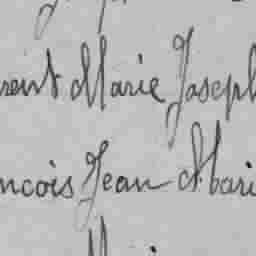 rent Marie Joseph
ncois Jean Mari